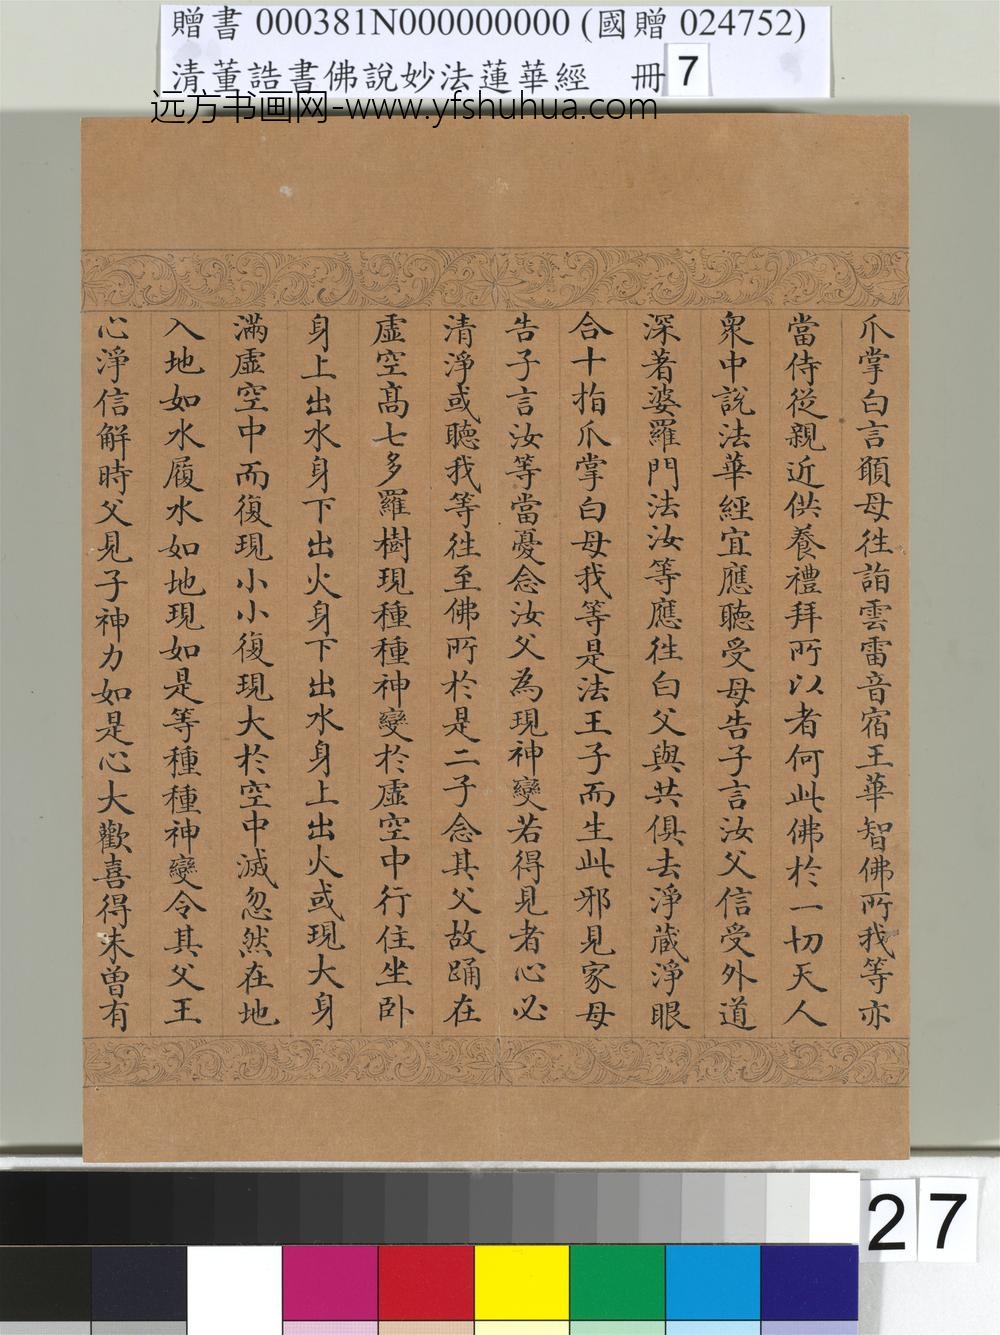 贈書 000381N000000000 (國贈 024752)
清董誥書佛說妙法蓮華經 冊 7
远方书画网-www.yfshuhua.com
爪掌白言願母往詣雲雷音宿王華智佛所我等亦
當侍從親近供養禮拜所以者何此佛於一切天人
眾中說法華經宜應聽受母告子言汝父信受外道
深著婆羅門法汝等應往白父與共俱去淨藏淨眼
合十指爪掌白母我等是法王子而生此邪見家母
告子言汝等當憂念汝父為現神變若得見者心必
清淨或聽我等往至佛所於是二子念其父故踊在
虛空高七多羅樹現種種神變於虛空中行住坐臥
身上出水身下出火身下出水身上出火或現大身
滿虛空中而復現小小復現大於空中滅忽然在地
入地如水履水如地現如是等種種神變令其父王
心淨信解時父見子神力如是心大歡喜得未曾有
27